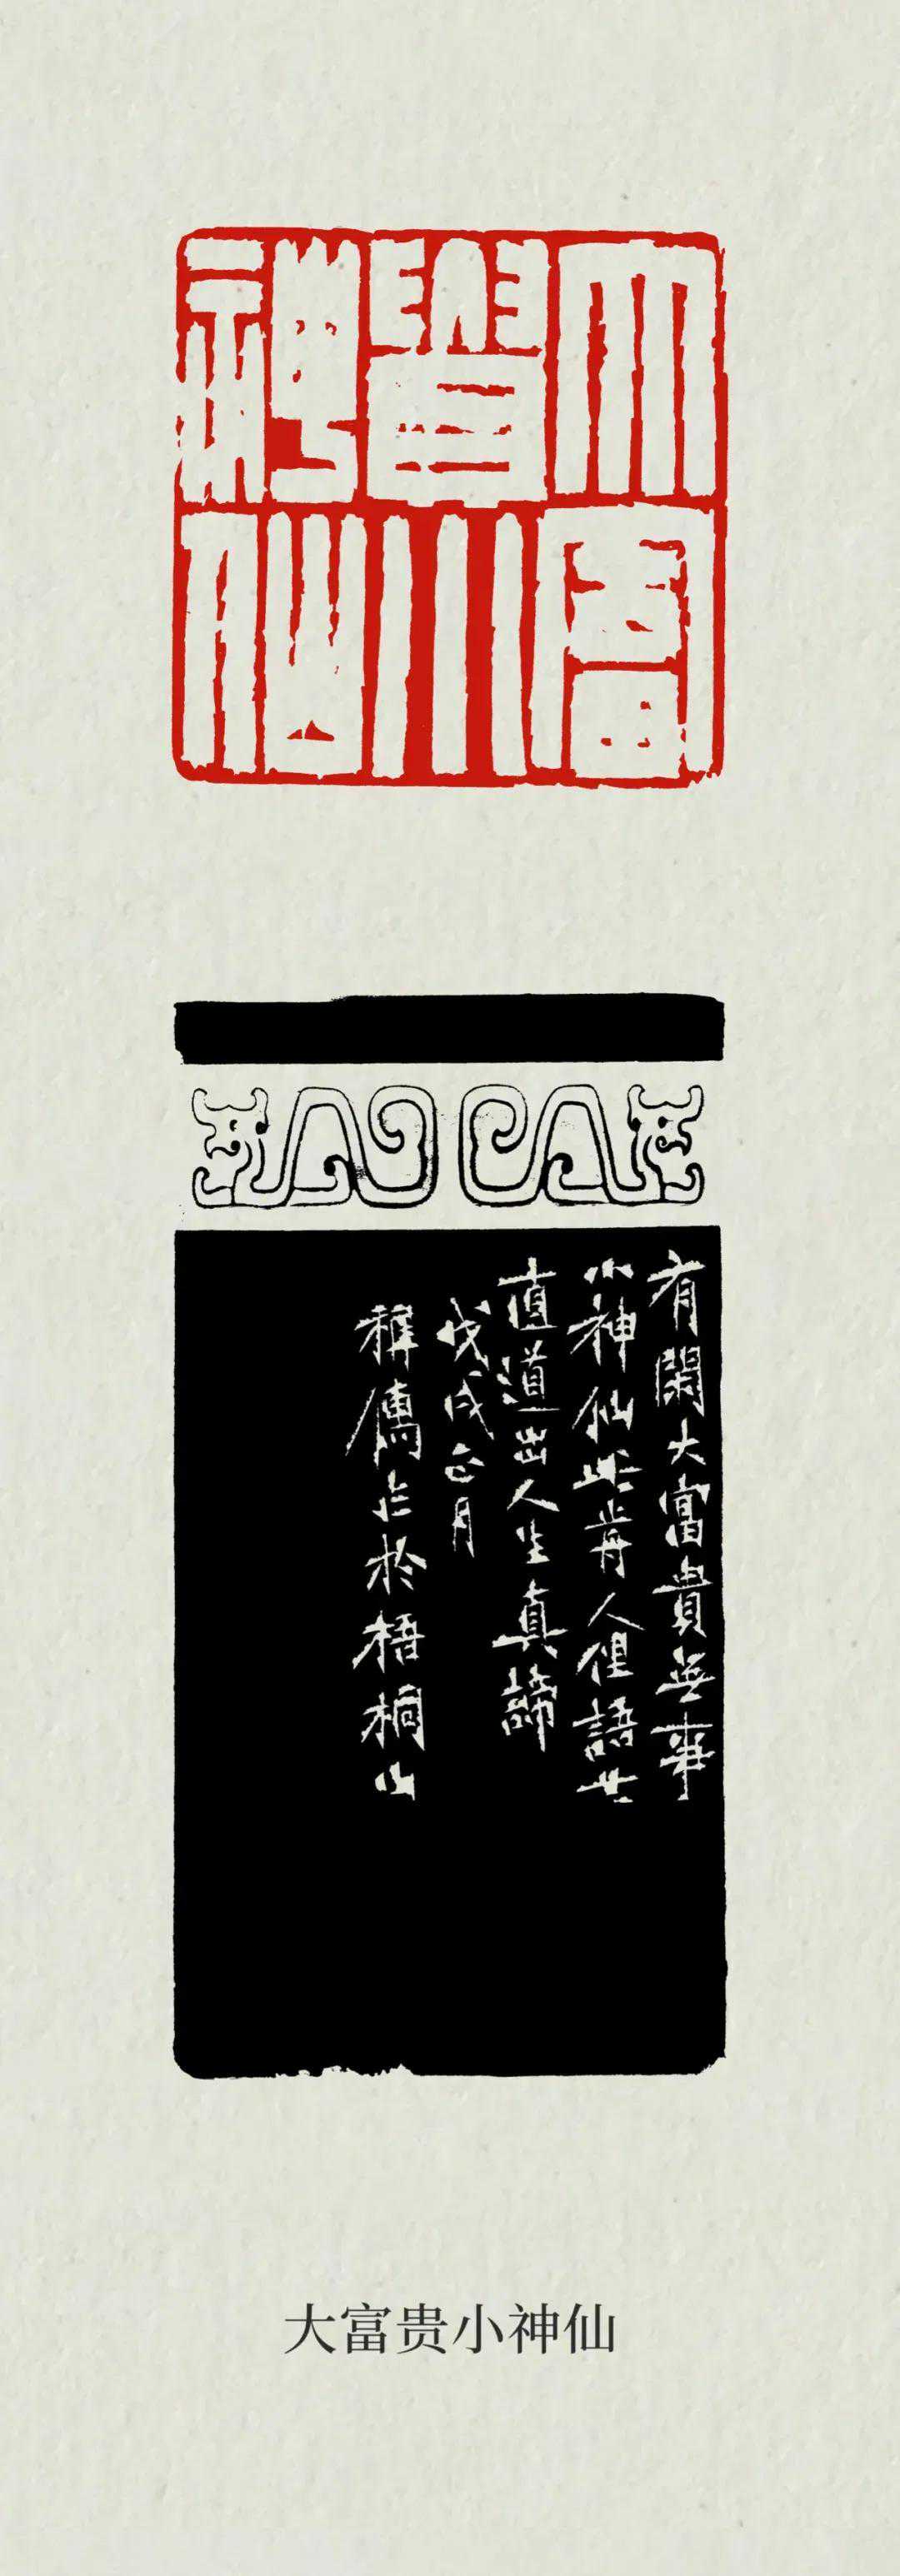 大富
貴小
神仙
有閑大富貴無事
小神仙此背人俚語世
直道出人生真諦
戊戌正月
稚儁上於梧桐山
大富贵小神仙